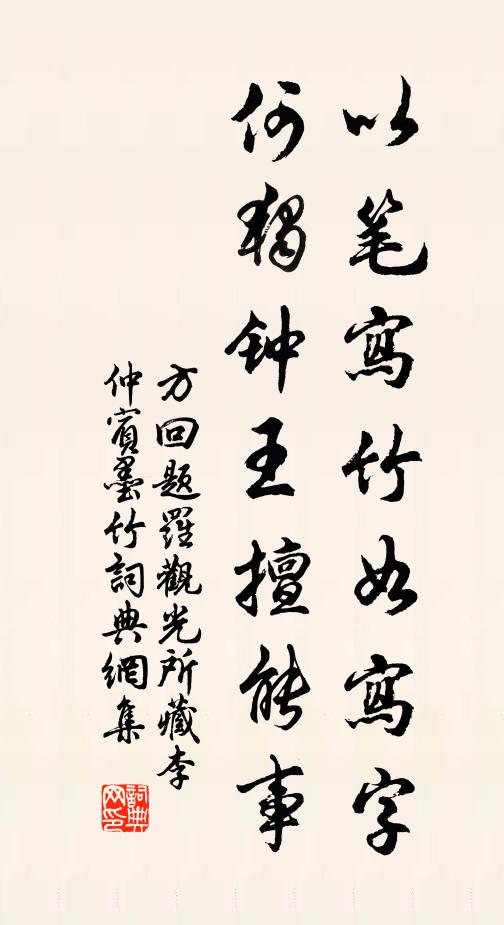 以笔寫竹如寫字
何獨钟王擅能事
方回题羅觀光所藏李
仲賓墨竹詞典網集
詞典
网印